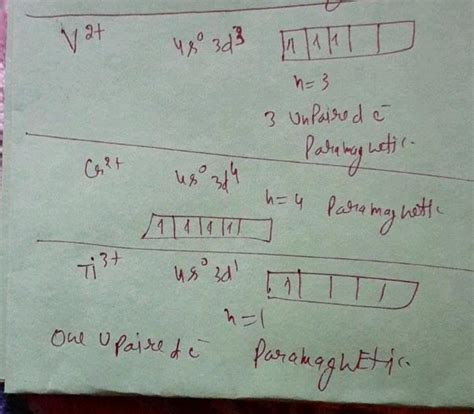 V²⁺ 4s⁰ 3d³ 1 1 1
n = 3
3 Unpaired e⁻
Paramagnetic.
Cr²⁺ 4s⁰ 3d⁴ n=4 Paramagnetic
1 1 1 1
Ti³⁺ 4s⁰ 3d¹ 1
n=1
One Upaired e⁻ Paramagnetic.